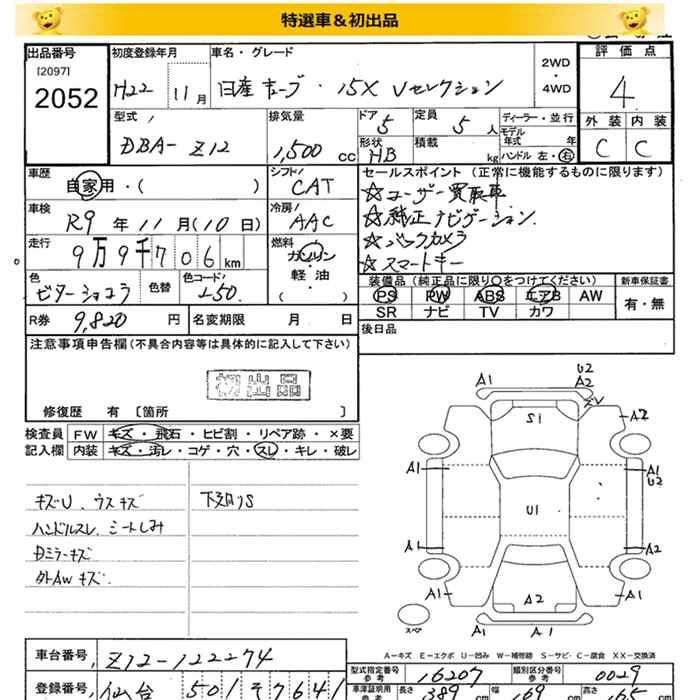 特選車＆初出品
出品番号 初度登録年月 車名・グレード 2WD・4WD 評価点
[2097]
2052 H22 11月 日産 キューブ・15X Vセレクション 4
型式 排気量 ドア 定員 ディーラー・並行 外装 内装
DBA- Z12 1,500cc 5 5人 モデル年式 年 C C
形状 積載 ハンドル 左・右
HB kg
車歴 シフト セールスポイント (正常に機能するものに限ります)
自家用・( ) CAT ☆ユーザー買取車
車検 冷房 ☆純正ナビゲーション
R9年11月(10日) AAC ☆バックカメラ
走行 燃料 ☆スマートキー
9万9千706km ガソリン
軽・油
( )
色 色替 色コード
ビターショコラ L50
装備品 (純正品に限り〇をつけてください) 新車保証書
PS PW ABS エアB AW 有・無
SR ナビ TV カワ
R券 9,820円 名変期限 月 日 後日品
注意事項申告欄(不具合内容等は具体的に記入して下さい)
初出品
修復歴 有 [箇所 ]
検査員 FW キズ・飛石・ヒビ割・リペア跡・×要
記入欄 内装 キズ・汚レ・コゲ・穴・スレ・キレ・破レ
キズU、ウスキズ 下廻りS
ハンドルスレ、シートしみ
Dミラーキズ
外AWキズ
A1 U2
A2
S1 A2
A1 A1
U2
U1
A1 A2
A1 A2 A1
スペア A1 A1
A－キズ E－エクボ U－凹み W－補修跡 S－サビ・C－腐食 XX－交換済
車台番号 Z12-122274
型式指定番号 参考 16207 類別区分番号 参考 0029
登録番号 仙台 501 そ 7641
車庫証明用 参考 長さ 389cm 幅 169cm 高さ 165cm